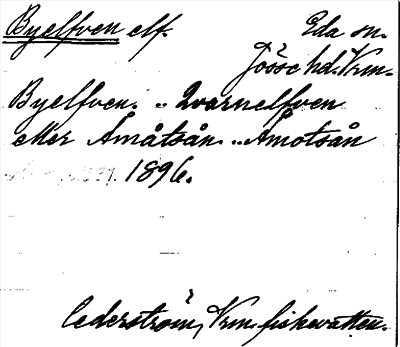 Byelfven elf. Eda sn.
Jösse hd. Vrm.
Byelfven. „ Qvarnelfven
eller Åmåtsån „ Åmotsån
1896.
Cederström, Vrm. fiskevatten.